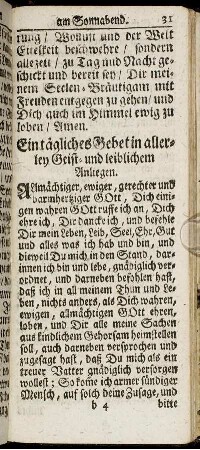 am Sonnabend. 31
rung / Wollust und der Welt
Eitelkeit beschwehre / sondern
allezeit / zu Tag und Nacht ge-
schickt und bereit sey / Dir mei-
nem Seelen-Bräutigam mit
Freuden entgegen zu gehen / und
Dich auch im Himmel ewig zu
loben / Amen.
Ein tägliches Gebet in aller-
ley Geist- und leiblichem
Anliegen.
Allmächtiger, ewiger, gerechter und
barmhertziger GOtt, Dich eini-
gen wahren GOtt ruffe ich an, Dich
ehre ich, Dir dancke ich, und befehle
Dir mein Leben, Leib, Seel, Ehr, Gut
und alles was ich hab und bin, und
dieweil Du mich in den Stand, dar-
innen ich bin und lebe, gnädiglich ver-
ordnet, und darneben befohlen hast,
daß ich in all meinem Thun und Le-
ben, nichts anders, als Dich wahren,
ewigen, allmächtigen GOtt ehren,
loben, und Dir alle meine Sachen
aus kindlichem Gehorsam heimstellen
soll, auch darneben versprochen und
zugesagt hast, daß Du mich als ein
treuer Vatter gnädiglich versorgen
wollest; So kome ich armer sündiger
Mensch, auf solch deine Zusage, und
b 4 bitte